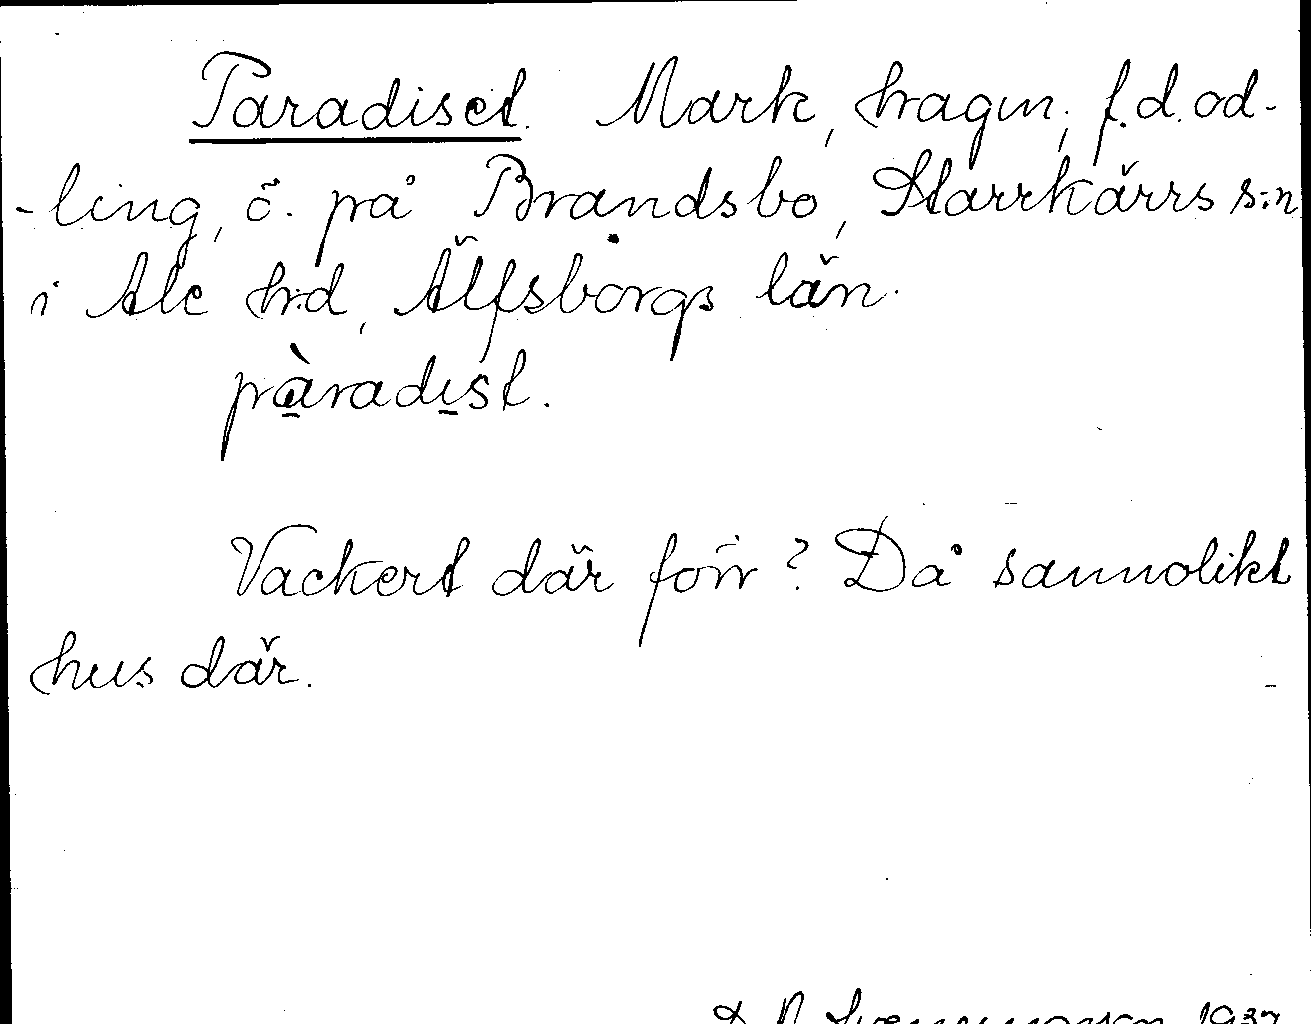 Paradiset. Mark, hagm, f.d. od-
-ling, ö. på Brandsbo, Starrkärrs s:n
i Ale h:d, Älfsborgs län.
pàradist.
Vackert där förr? Då sannolikt
hus där.
1937